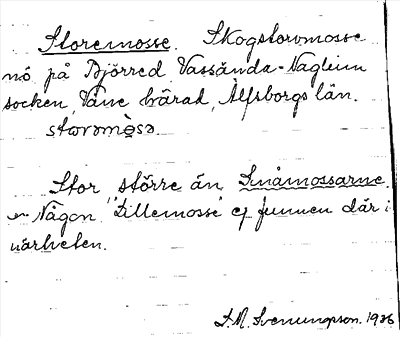 Storemosse. Skogstorvmosse
nö på Björred Vassända-Naglum
socken, Väne härad, Älfsborgs län.
storomèsə.
Stor större än Småmossarne.
Någon 'Lillemosse' ej funnen där i
närheten.
1926